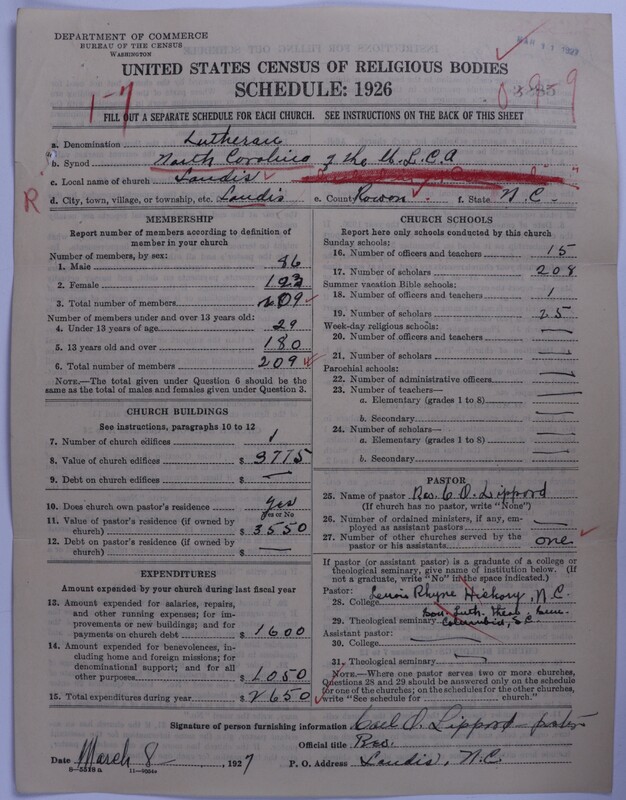 DEPARTMENT OF COMMERCE
BUREAU OF THE CENSUS
WASHINGTON
MAR 11 1927
UNITED STATES CENSUS OF RELIGIOUS BODIES
SCHEDULE: 1926
1-7
FILL OUT A SEPARATE SCHEDULE FOR EACH CHURCH. SEE INSTRUCTIONS ON THE BACK OF THIS SHEET
a. Denomination Lutheran
b. Synod North Carolina of the U.L.C.A
c. Local name of church Landis
R
d. City, town, village, or township, etc. Landis e. County Rowan f. State N.C.
MEMBERSHIP
Report number of members according to definition of
member in your church
Number of members, by sex:
1. Male 86
2. Female 123
3. Total number of members 209
Number of members under and over 13 years old:
4. Under 13 years of age 29
5. 13 years old and over 180
6. Total number of members 209
NOTE.—The total given under Question 6 should be
same as the total of males and females given under Question 3.
CHURCH BUILDINGS
See instructions, paragraphs 10 to 12
7. Number of church edifices 1
8. Value of church edifices $ 3775
9. Debt on church edifices $ —
10. Does church own pastor's residence Yes
Yes or No
11. Value of pastor's residence (if owned by
church) $ 3550
12. Debt on pastor's residence (if owned by
church) $ —
EXPENDITURES
Amount expended by your church during last fiscal year
13. Amount expended for salaries, repairs,
and other running expenses; for im-
provements or new buildings; and for
payments on church debt $ 1600
14. Amount expended for benevolences, in-
cluding home and foreign missions; for
denominational support; and for all
other purposes $ 1050
15. Total expenditures during year $ 2650
CHURCH SCHOOLS
Report here only schools conducted by this church
Sunday schools:
16. Number of officers and teachers 15
17. Number of scholars 208
Summer vacation Bible schools:
18. Number of officers and teachers 1
19. Number of scholars 25
Week-day religious schools:
20. Number of officers and teachers —
21. Number of scholars —
Parochial schools:
22. Number of administrative officers —
23. Number of teachers—
a. Elementary (grades 1 to 8) —
b. Secondary —
24. Number of scholars—
a. Elementary (grades 1 to 8) —
b. Secondary —
PASTOR
25. Name of pastor Rev. C O. Lippard
(If church has no pastor, write "None")
26. Number of ordained ministers, if any, em-
ployed as assistant pastors —
27. Number of other churches served by the
pastor or his assistants one
If pastor (or assistant pastor) is a graduate of a college or
theological seminary, give name of institution below. (If
not a graduate, write "No" in the space indicated.)
Pastor: Lenoir Rhyne Hickory, N.C.
28. College
Sou. Luth. Theo. Sem.
29. Theological seminary Columbia, S.C.
Assistant pastor:
30. College —
31. Theological seminary —
NOTE.—Where one pastor serves two or more churches,
Questions 28 and 29 should be answered only on the schedule
for one of the churches; on the schedules for the other churches,
write "See schedule for church."
Signature of person furnishing information Carl O. Lippard - pastor
Official title Rev.
Date March 8, 1927 P. O. Address Landis, N.C.